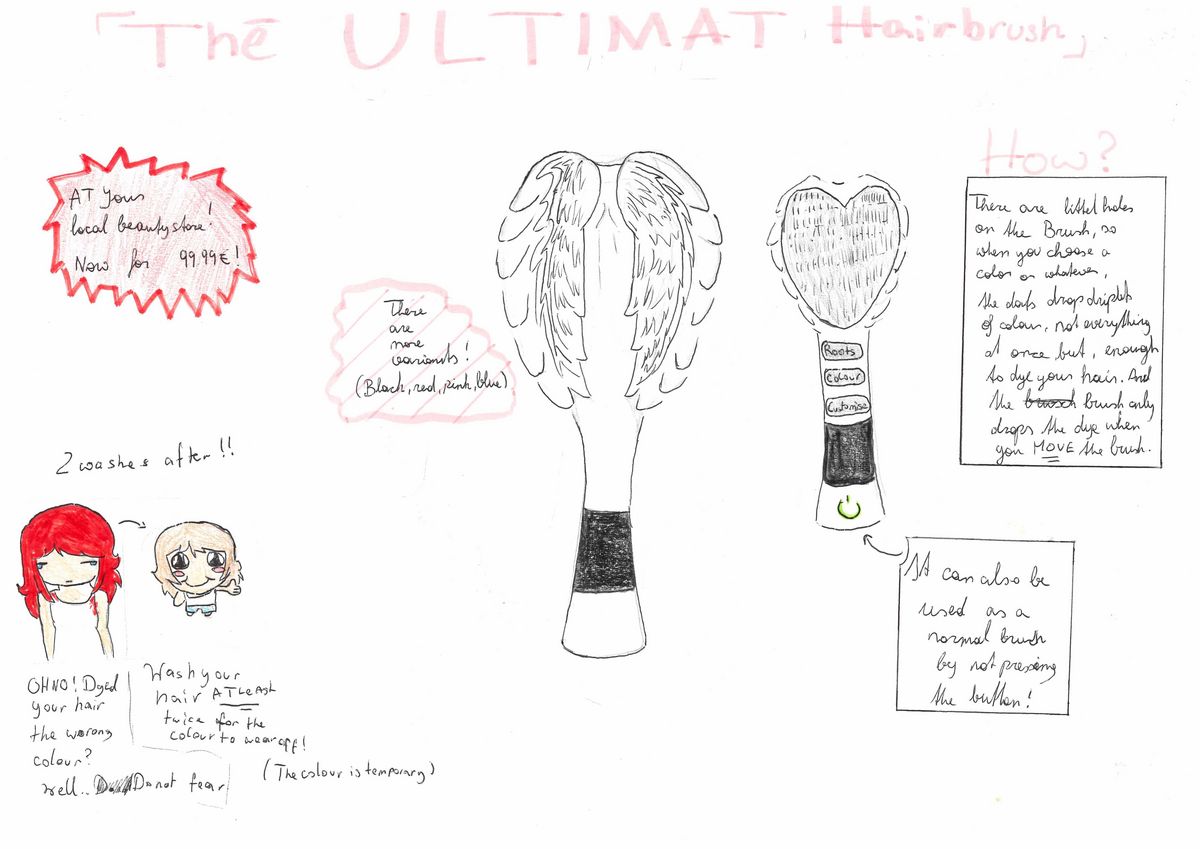 「The ULTIMAT Hairbrush」
AT Your
local beautystore!
Now for 99.99€!
There
are
more
variants!
(Black, red, pink, blue)
How?
There are littel holes
on the Brush, so
when you choose a
color or whatever,
the dots drop driplets
of colour, not everything
at once but, enough
to dye your hair. And
the brush only
drops the dye when
you MOVE the brush.
Roots
Colour
Customise
It can also be
used as a
normal brush
by not pressing
the button!
2 washes after!!
OH NO! Dyed
your hair
the worong
colour?
Well.. Do not fear
Wash your
hair ATLEAST
twice for the
colour to wear off!
(The colour is temporary)